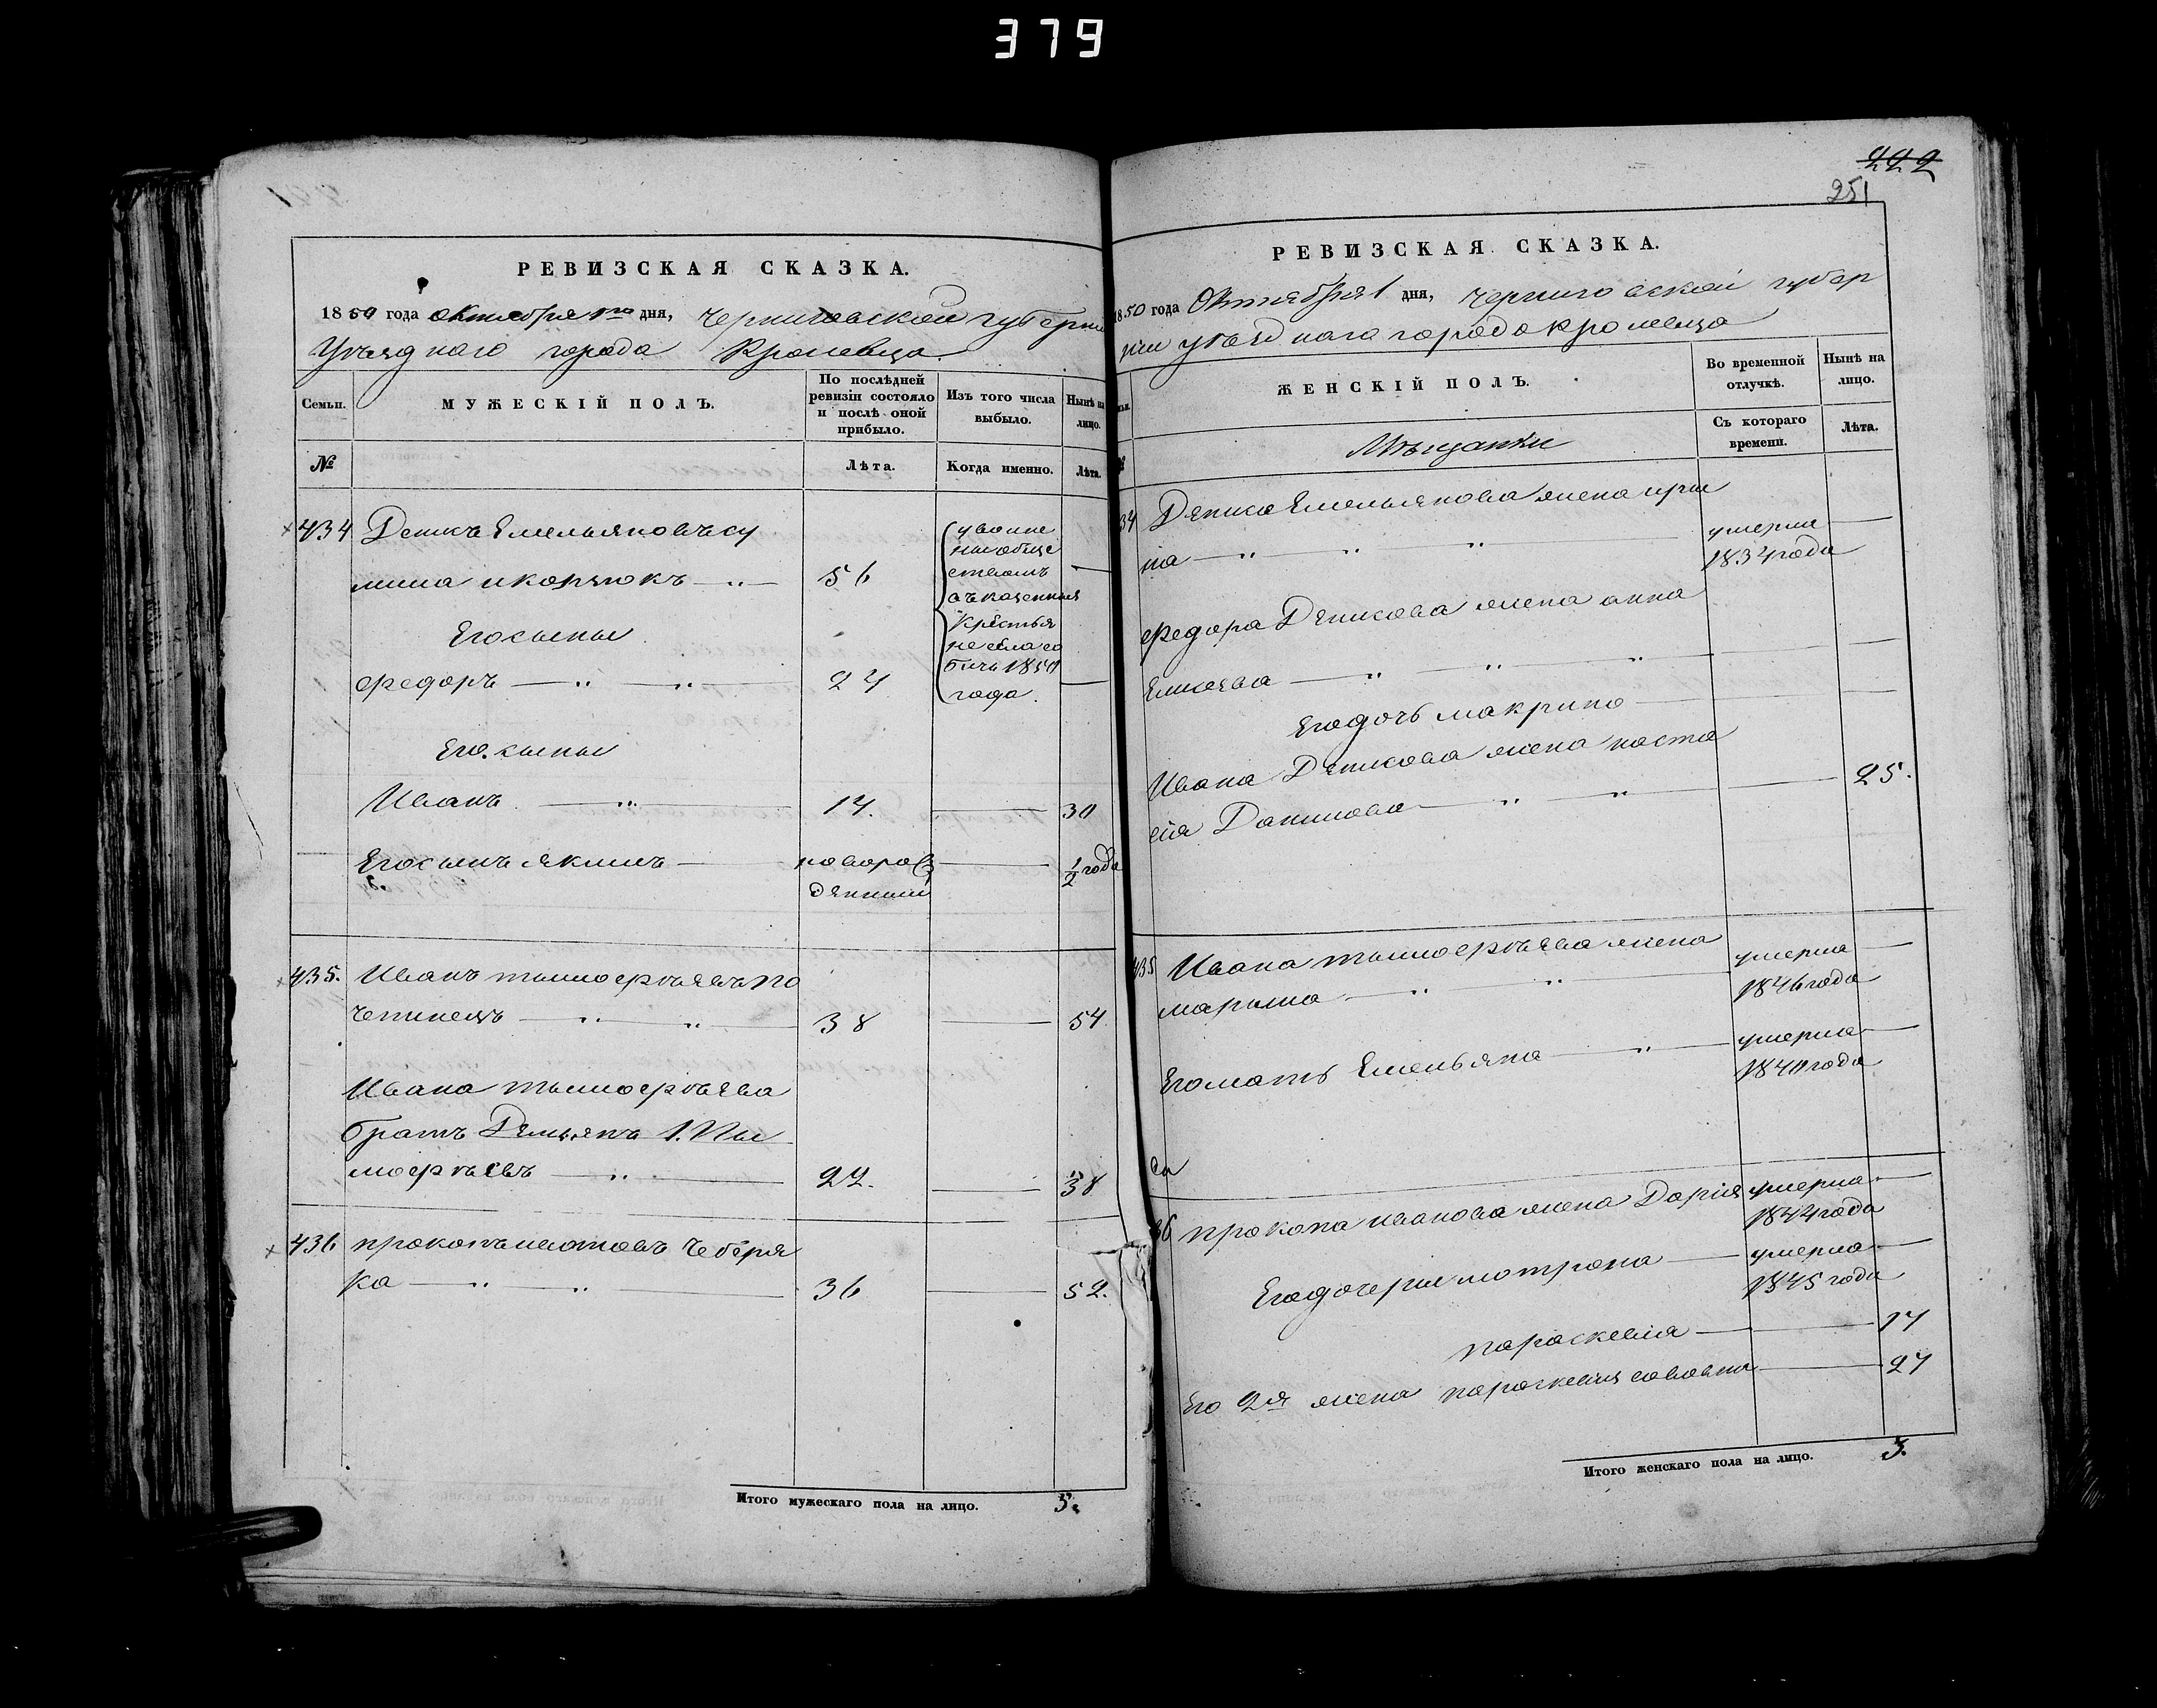 379
РЕВИЗСКАЯ СКАЗКА.
1850 года октября 1го дня, Черниговской губернии
Уѣзднаго города Кролевца
Семьи.
МУЖЕСКІЙ ПОЛЪ.
По послѣдней ревизіи состояло и послѣ оной прибыло.
Изъ того числа выбыло.
Нынѣ на лицо.
№
Лѣта.
Когда именно.
Лѣта.
434
56
Его сыны
Федоръ
24
крестья
1850
года.
Его сыны
Иванъ
14.
30
Его сынъ Якимъ
новорож
денный
1/2 года
435.
Иванъ Тимофѣевъ По
38
54
Ивана Тимофѣева
братъ Демьянъ 1. Ти
мофѣевъ
22.
38
436
Прокопъ Ивановъ Чебѣря
ка
36
52.
Итого мужескаго пола на лицо.
5.
222
251
РЕВИЗСКАЯ СКАЗКА.
1850 года Октября 1 дня, Черниговской губер
ніи уѣзднаго города Кролевца
ЖЕНСКІЙ ПОЛЪ.
Во временной отлучкѣ.
Нынѣ на лицо.
Мѣщанки
Съ котораго времени.
Лѣта.
34
Емельянова жена Ири
на
умерла
1834 года
Федора Деникова жена Анна
Его дочь Макрина
Ивана Деникова жена Наста
сія Данилова
25.
435
Ивана Тимофѣева жена
Марына
умерла
1846 года
Его мать Емельяна
умерла
1840 года
36
Прокопа Иванова жена Дарія
умерла
1844 года
Его дочери Мотрона
умерла
1845 года
Параскевія
14
Его 2я жена Параскевія Савовна
27
Итого женскаго пола на лицо.
3.